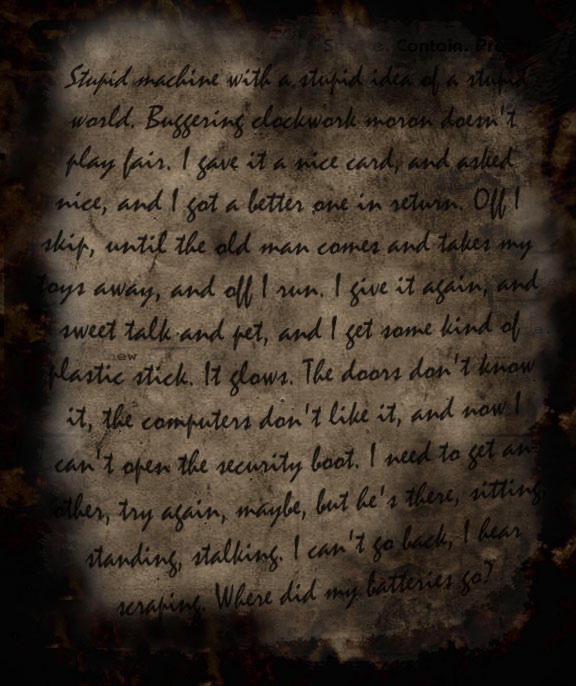 Secure. Contain. Protect.
Stupid machine with a stupid idea of a stupid
world. Buggering clockwork moron doesn't
play fair. I gave it a nice card, and asked
nice, and I got a better one in return. Off I
skip, until the old man comes and takes my
toys away, and off I run. I give it again, and
sweet talk and pet, and I get some kind of
new
plastic stick. It glows. The doors don't know
it, the computers don't like it, and now I
can't open the security boot. I need to get an-
other, try again, maybe, but he's there, sitting,
standing, stalking. I can't go back, I hear
scraping. Where did my batteries go?